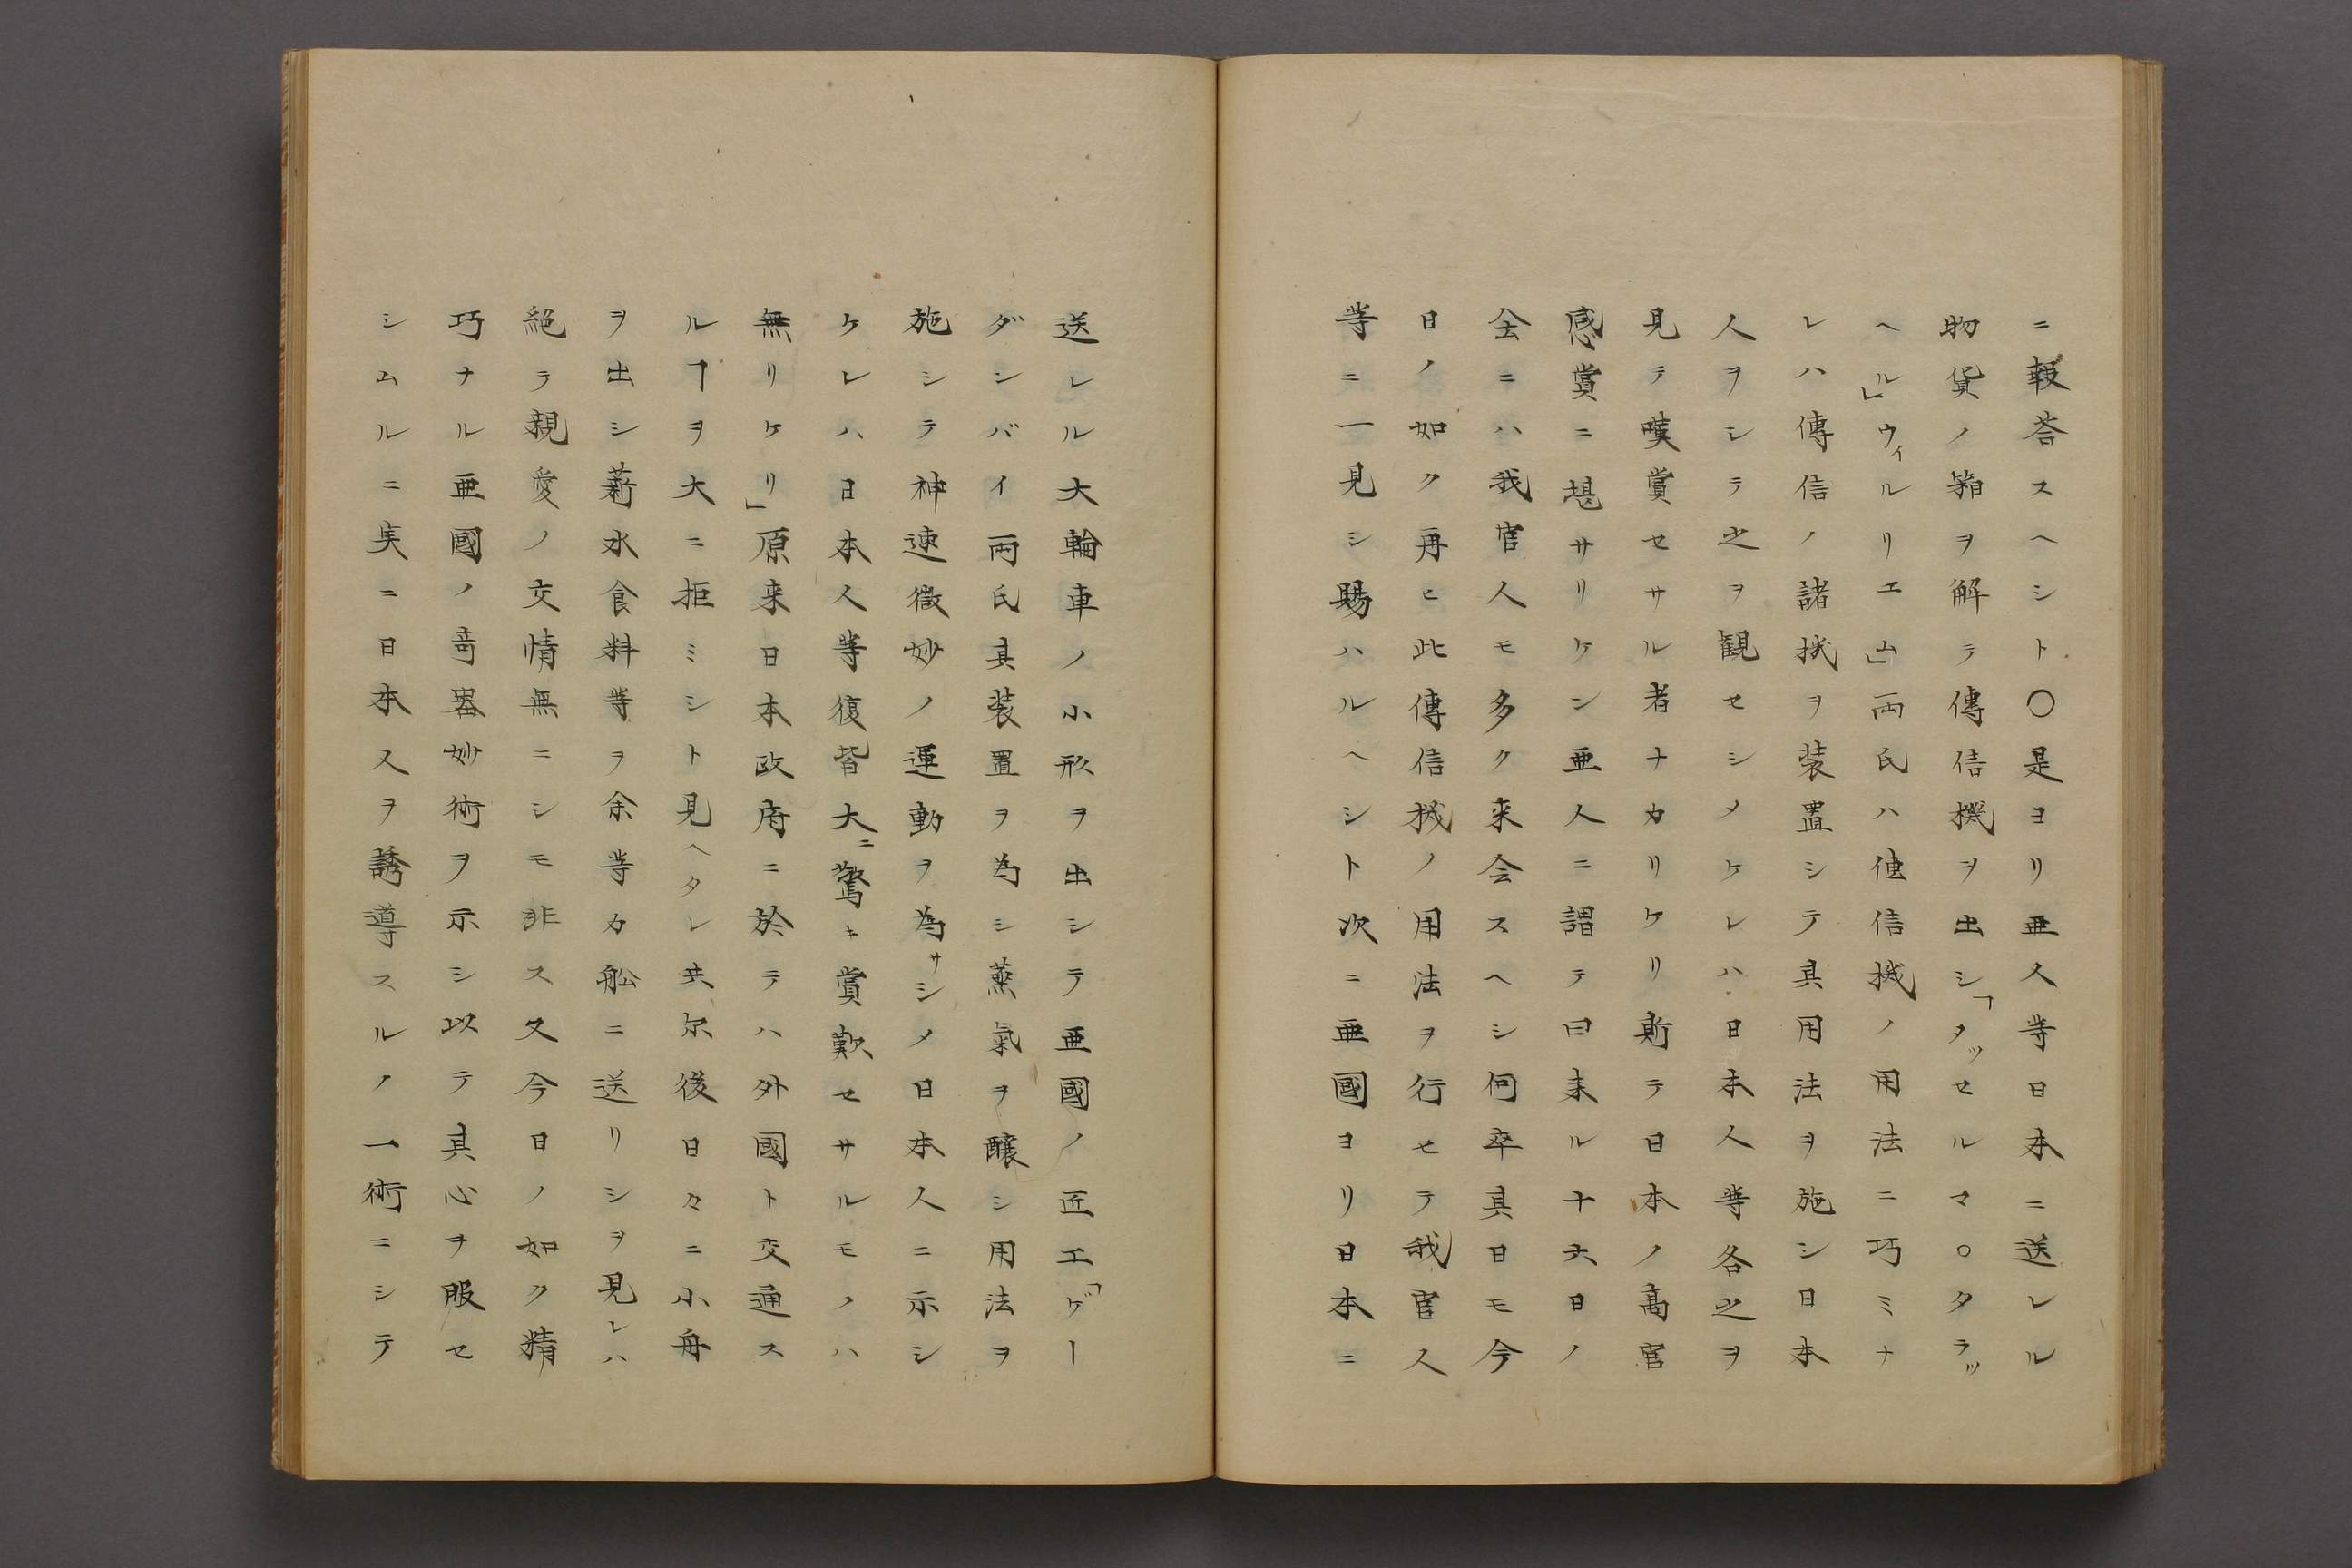 ニ報荅スヘシト〇是ヨリ亜人等日本ニ送レル
物貨ノ箱ヲ解テ傳信機ヲ出シ「タッセルマ○タラッ
ヘル」ウィルリエム」両氏ハ傳信機ノ用法ニ巧ミナ
レハ傳信ノ諸機ヲ装置シテ其用法ヲ施シ日本
人ヲシテ之ヲ観セシメケレハ日本人等各之ヲ
見テ嘆賞セサル者ナカリケリ斯テ日本ノ高官
感賞ニ堪サリケン亜人ニ謂テ曰来ル十六日ノ
會ニハ我官人モ多ク来会スヘシ何卒其日モ今
日ノ如ク再ヒ此傳信機ノ用法ヲ行セテ我官人
等ニ一見シ賜ハルヘシト次ニ亜國ヨリ日本ニ
送レル大輪車ノ小形ヲ出シテ亜國ノ匠工「ゲー
ダンバイ両氏其装置ヲ為シ蒸氣ヲ醸シ用法ヲ
施シテ神速微妙ノ運動ヲ為サシメ日本人ニ示シ
ケレハ日本人等復皆大ニ驚キ賞歎セサルモノハ
無リケリ」原来日本政府ニ於テハ外國ト交通ス
ルヿヲ大ニ拒ミシト見ヘタレ共尓後日々ニ小舟
ヲ出シ薪水食料等ヲ余等カ舩ニ送リシヲ見レハ
絶テ親愛ノ交情無ニシモ非ス又今日ノ如ク精
巧ナル亜國ノ竒器妙術ヲ示シ以テ其心ヲ服セ
シムルニ実ニ日本人ヲ誘導スルノ一術ニシテ